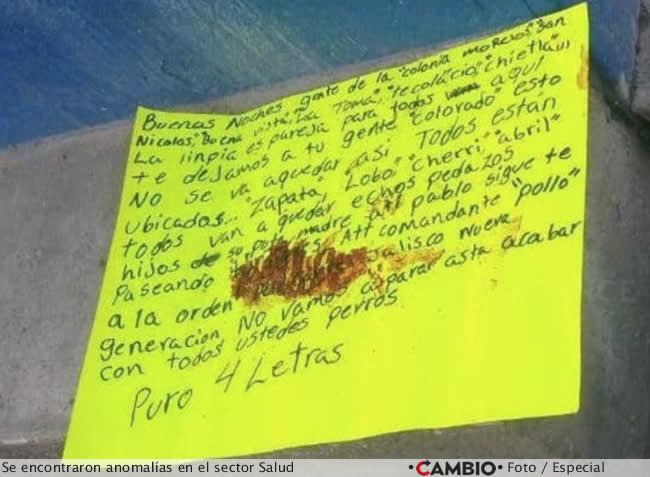 Buenas Noches gente de la "colonia morelos", "San
Nicolas", "Buena vista", "La Toma", "tecolacio", "Chietla",
La linpia es pareja para todos aqui
te dejamos a tu gente "Colorado" esto
No se va aquedar asi Todos estan
ubicados... "Zapata", "Lobo" "Cherri" "abril"
todos van a quedar echos pedazos
hijos de su puta madre att pablo sigue te
Paseando Att comandante "pollo"
a la orden jalisco nueva
generacion No vamos a parar asta acabar
con todos ustedes perros
Puro 4 Letras
Se encontraron anomalías en el sector Salud
•CAMBIO• Foto / Especial